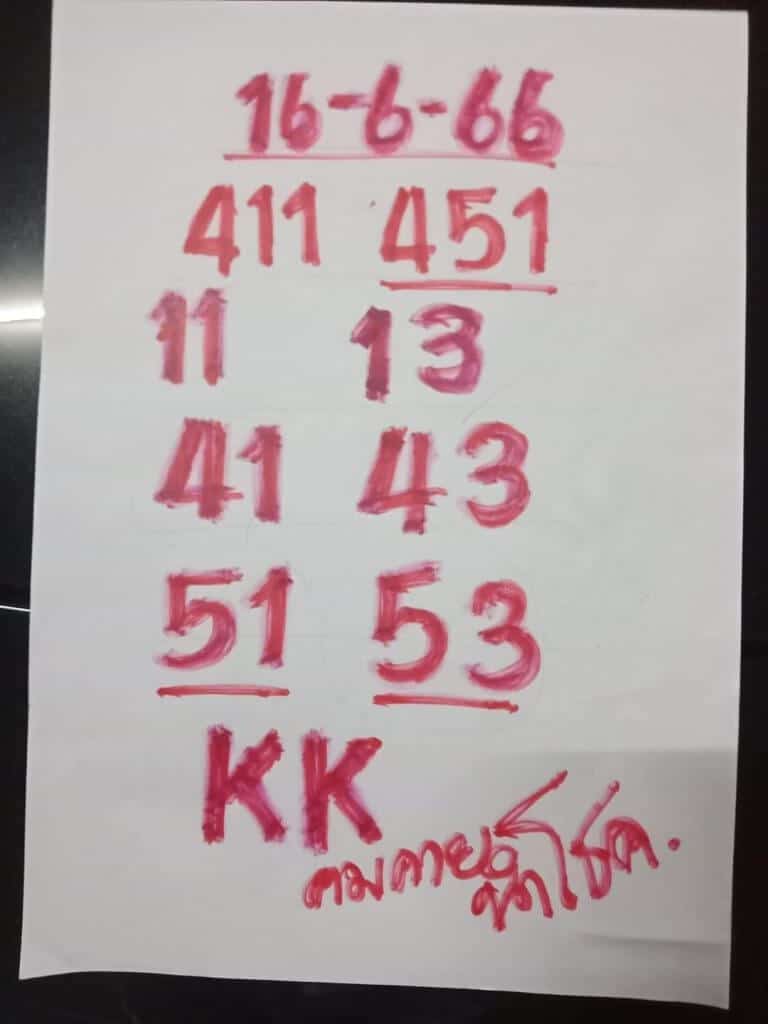 16-6-66
411 451
11 13
41 43
51 53
KK
คมคาย โชค.